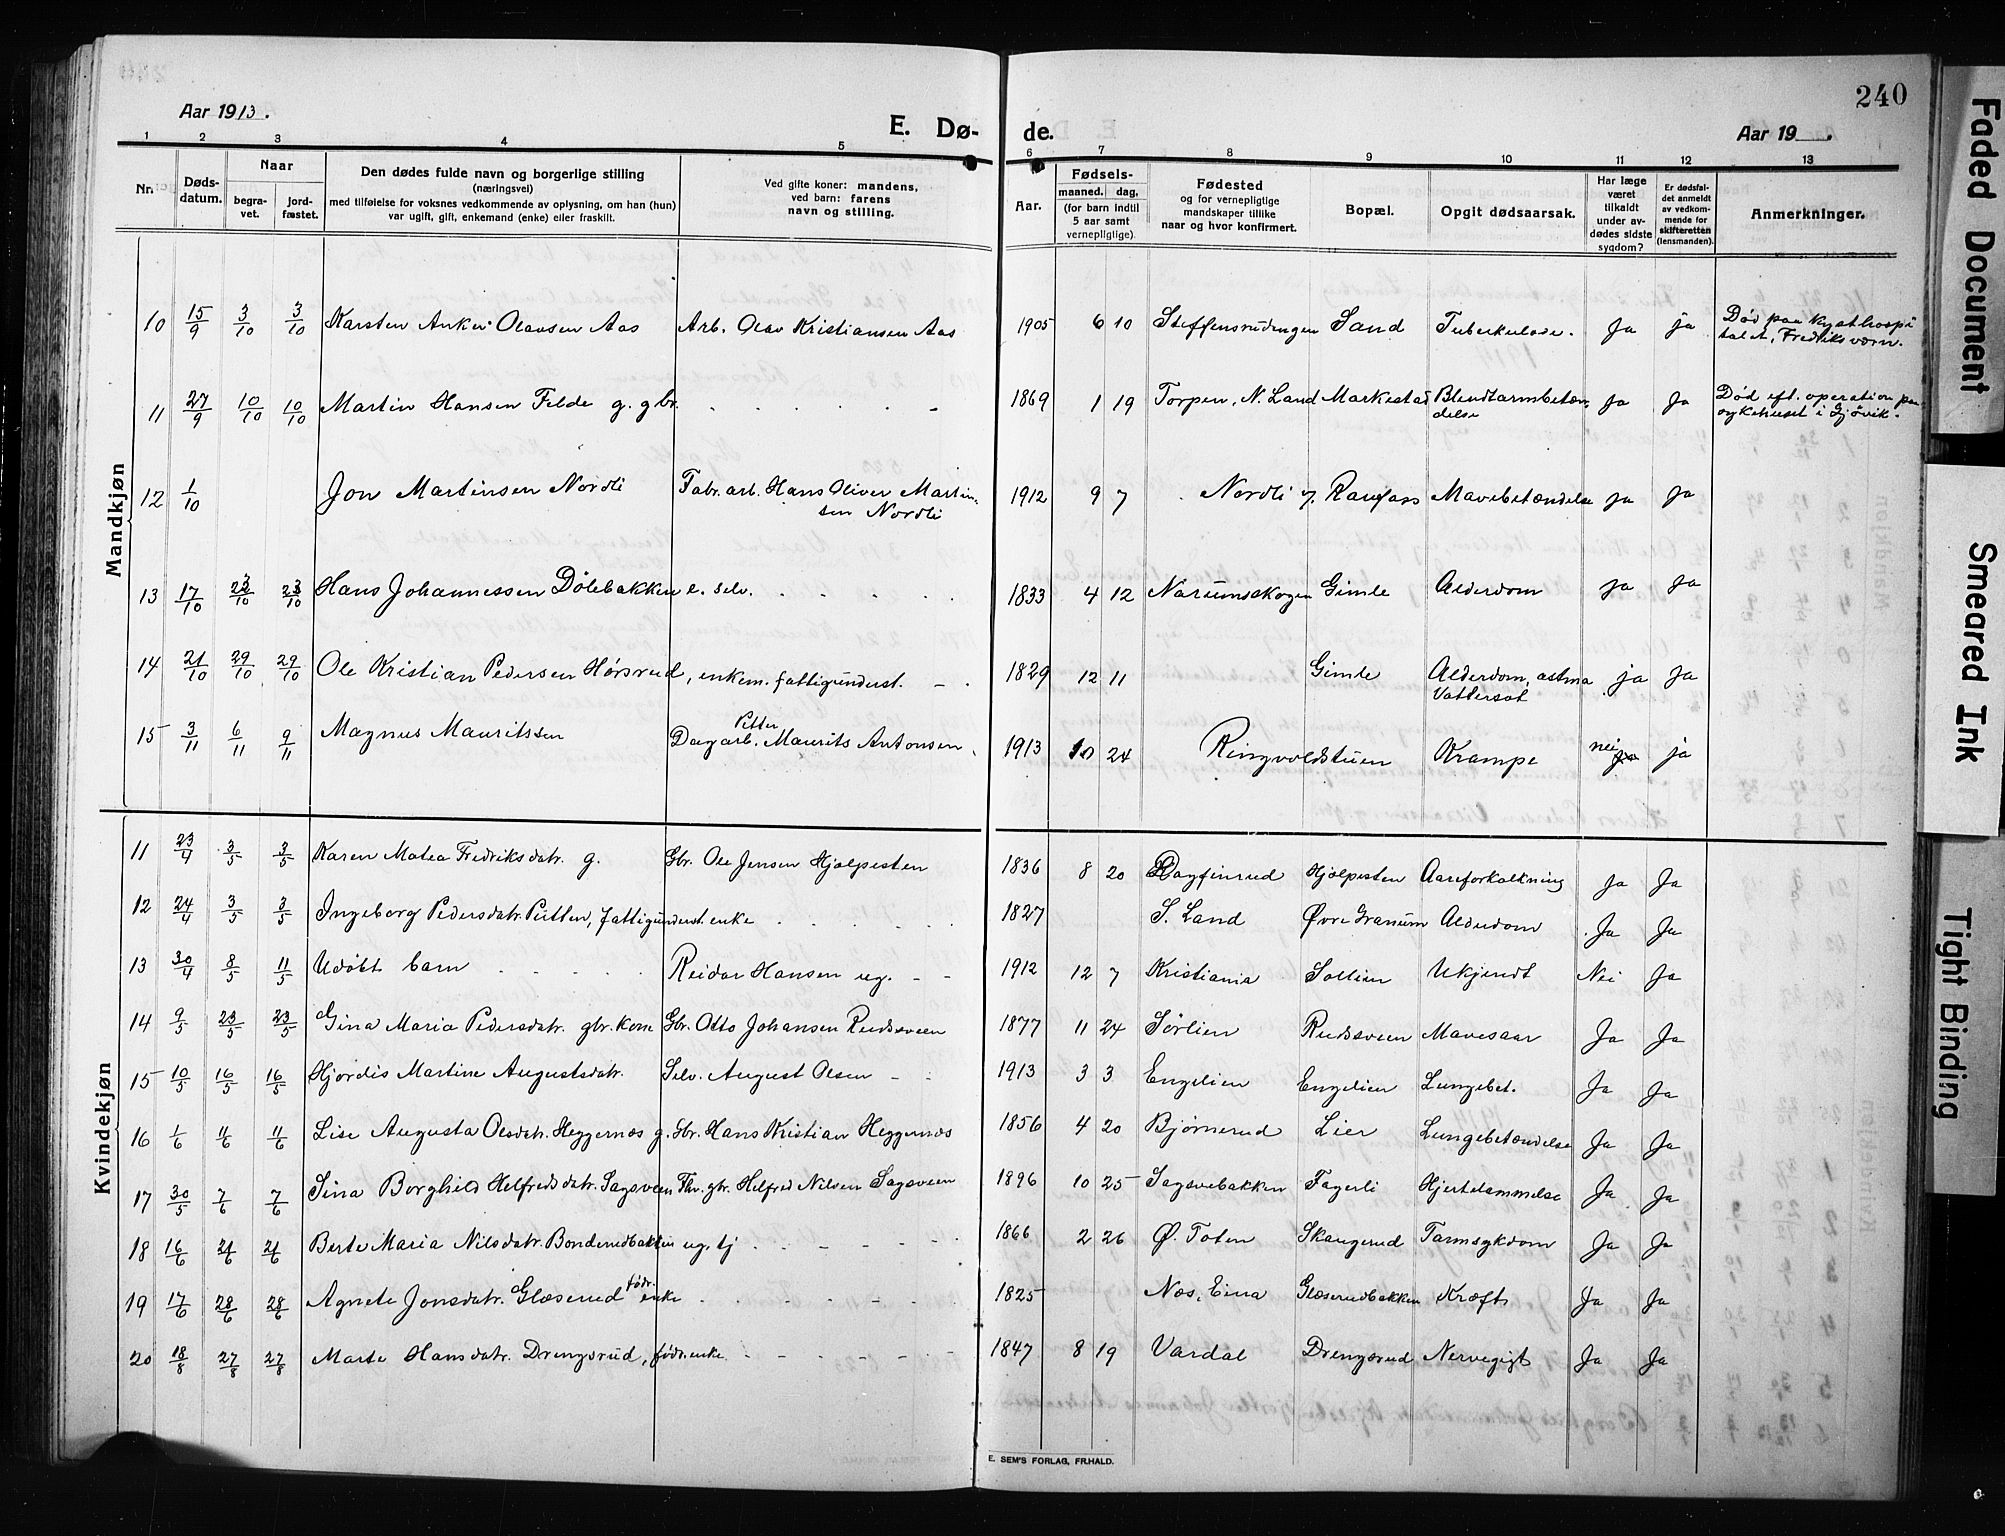 240
Aar 1913.
E. Dø-
de.
Aar 19 .
1 2 3 4 5 6 7 8 9 10 11 12 13
Nr.
Døds-
datum.
Naar
begra-
vet.
jord-
fæstet.
Den dødes fulde navn og borgerlige stilling
(næringsvei)
med tilføielse for voksnes vedkommende av oplysning, om han (hun)
var ugift, gift, enkemand (enke) eller fraskilt.
Ved gifte koner: mandens,
ved barn: farens
navn og stilling.
Aar.
Fødsels-
maaned. dag,
(for barn indtil
5 aar samt
vernepligtige).
Fødested
og for vernepligtige
mandskaper tillike
naar og hvor konfirmert.
Bopæl.
Opgit dødsaarsak.
Har læge
været
tilkaldt
under av-
dødes sidste
sygdom?
Er dødsfal-
det anmeldt
av vedkom-
mende for
skifteretten
(lensmanden).
Anmerkninger.
Mandkjøn
10 15/9 3/10 3/10 Karsten Anker Olavsen Aas Arb. Olav Kristiansen Aas 1905 6 10 Steffensrudengen Sand Tuberkulose. Ja ja Død paa Kysthospi
talet, Fredriksværn.
11 27/9 10/10 10/10 Martin Hansen Felde g. gbr. 1869 1 19 Torpen, N. Land Markestad Blindtarmbetæn-
delse ja Ja Død eft. operation paa
sykehuset i Gjøvik.
12 1/10 Jon Martinsen Nordli Fabr. arb. Hans Oliver Martin-
sen Nordli 1912 9 7 Nordli v. Raufoss Mavebetændelse ja Ja
13 17/10 23/10 23/10 Hans Johannessen Dølebakken e. selv. 1833 4 12 Narumsskogen Gimle Alderdom ja Ja
14 21/10 29/10 29/10 Ole Kristian Pedersen Hørsrud, enkem. fattigunderst. 1829 12 11 Gimle Alderdom, astma
Vattersot ja Ja
15 3/11 6/11 9/11 Magnus Mauritssen Dagarb. Petter Maurits Antonsen 1913 10 24 Ringvoldstuen Krampe nei ja ja
Kvindekjøn
11 23/4 3/5 3/5 Karen Matea Fredriksdatr. g. Gbr. Ole Jensen Hjælpesten 1836 8 20 Dagfinrud Hjælpesten Aareforkalkning ja Ja
12 24/4 3/5 3/5 Ingeborg Pedersdatr. Putten, fattigunderst. enke 1827 S. Land Øvre Granum Alderdom Ja Ja
13 30/4 8/5 11/5 Udøbt barn Reidar Hansen ug. 1912 12 7 Kristiania Sollien Ukjendt Nei Ja
14 9/5 23/5 23/5 Gina Maria Pedersdatr. gbr. kone Gbr. Otto Johansen Rudsveen 1877 11 24 Sørlien Rudsveen Mavesaar Ja Ja
15 10/5 16/5 16/5 Hjørdis Martine Augustsdatr. Selv. August Olsen 1913 3 3 Engelien Engelien Lungebet. Ja Ja
16 1/6 11/6 11/6 Lise Augusta Olsdatr. Heggernæs g. Gbr. Hans Kristian Heggernæs 1856 4 20 Bjørnerud Lier Lungebetændelse Ja Ja
17 30/5 7/6 7/6 Sina Borghild Helfredsdatr. Sagsveen Fhv. gbr. Helfred Nilsen Sagsveen 1896 10 25 Sagsvebakken Fagerli Hjertelammelse Ja Ja
18 16/6 21/6 21/6 Berte Maria Nilsdatr. Bonderudbakken ug. tj 1866 2 26 Ø. Toten Skaugerud Tarmsykdom Ja Ja
19 17/6 28/6 28/6 Agnete Jonsdatr. Glæserud fødr. enke 1825 Næs, Eina Glæserudbakken Kræft Ja Ja
20 18/8 27/8 27/8 Marte Hansdatr. Drengsrud, fødr. enke 1847 8 19 Vardal Drengsrud Nervegigt Ja Ja
E. SEM'S FORLAG, FR.HALD.
Faded Document
Smeared Ink
Tight Binding